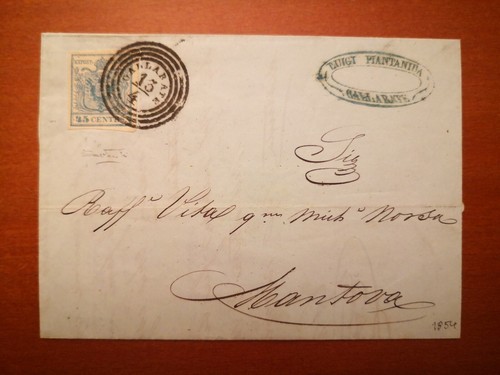 45 CENTES
GALLARATE
13
4
LUIGI PIANTANIDA
GALLARATE
Sig
Raff.e Vital qm Mich.e Norsa
Mantova
1854